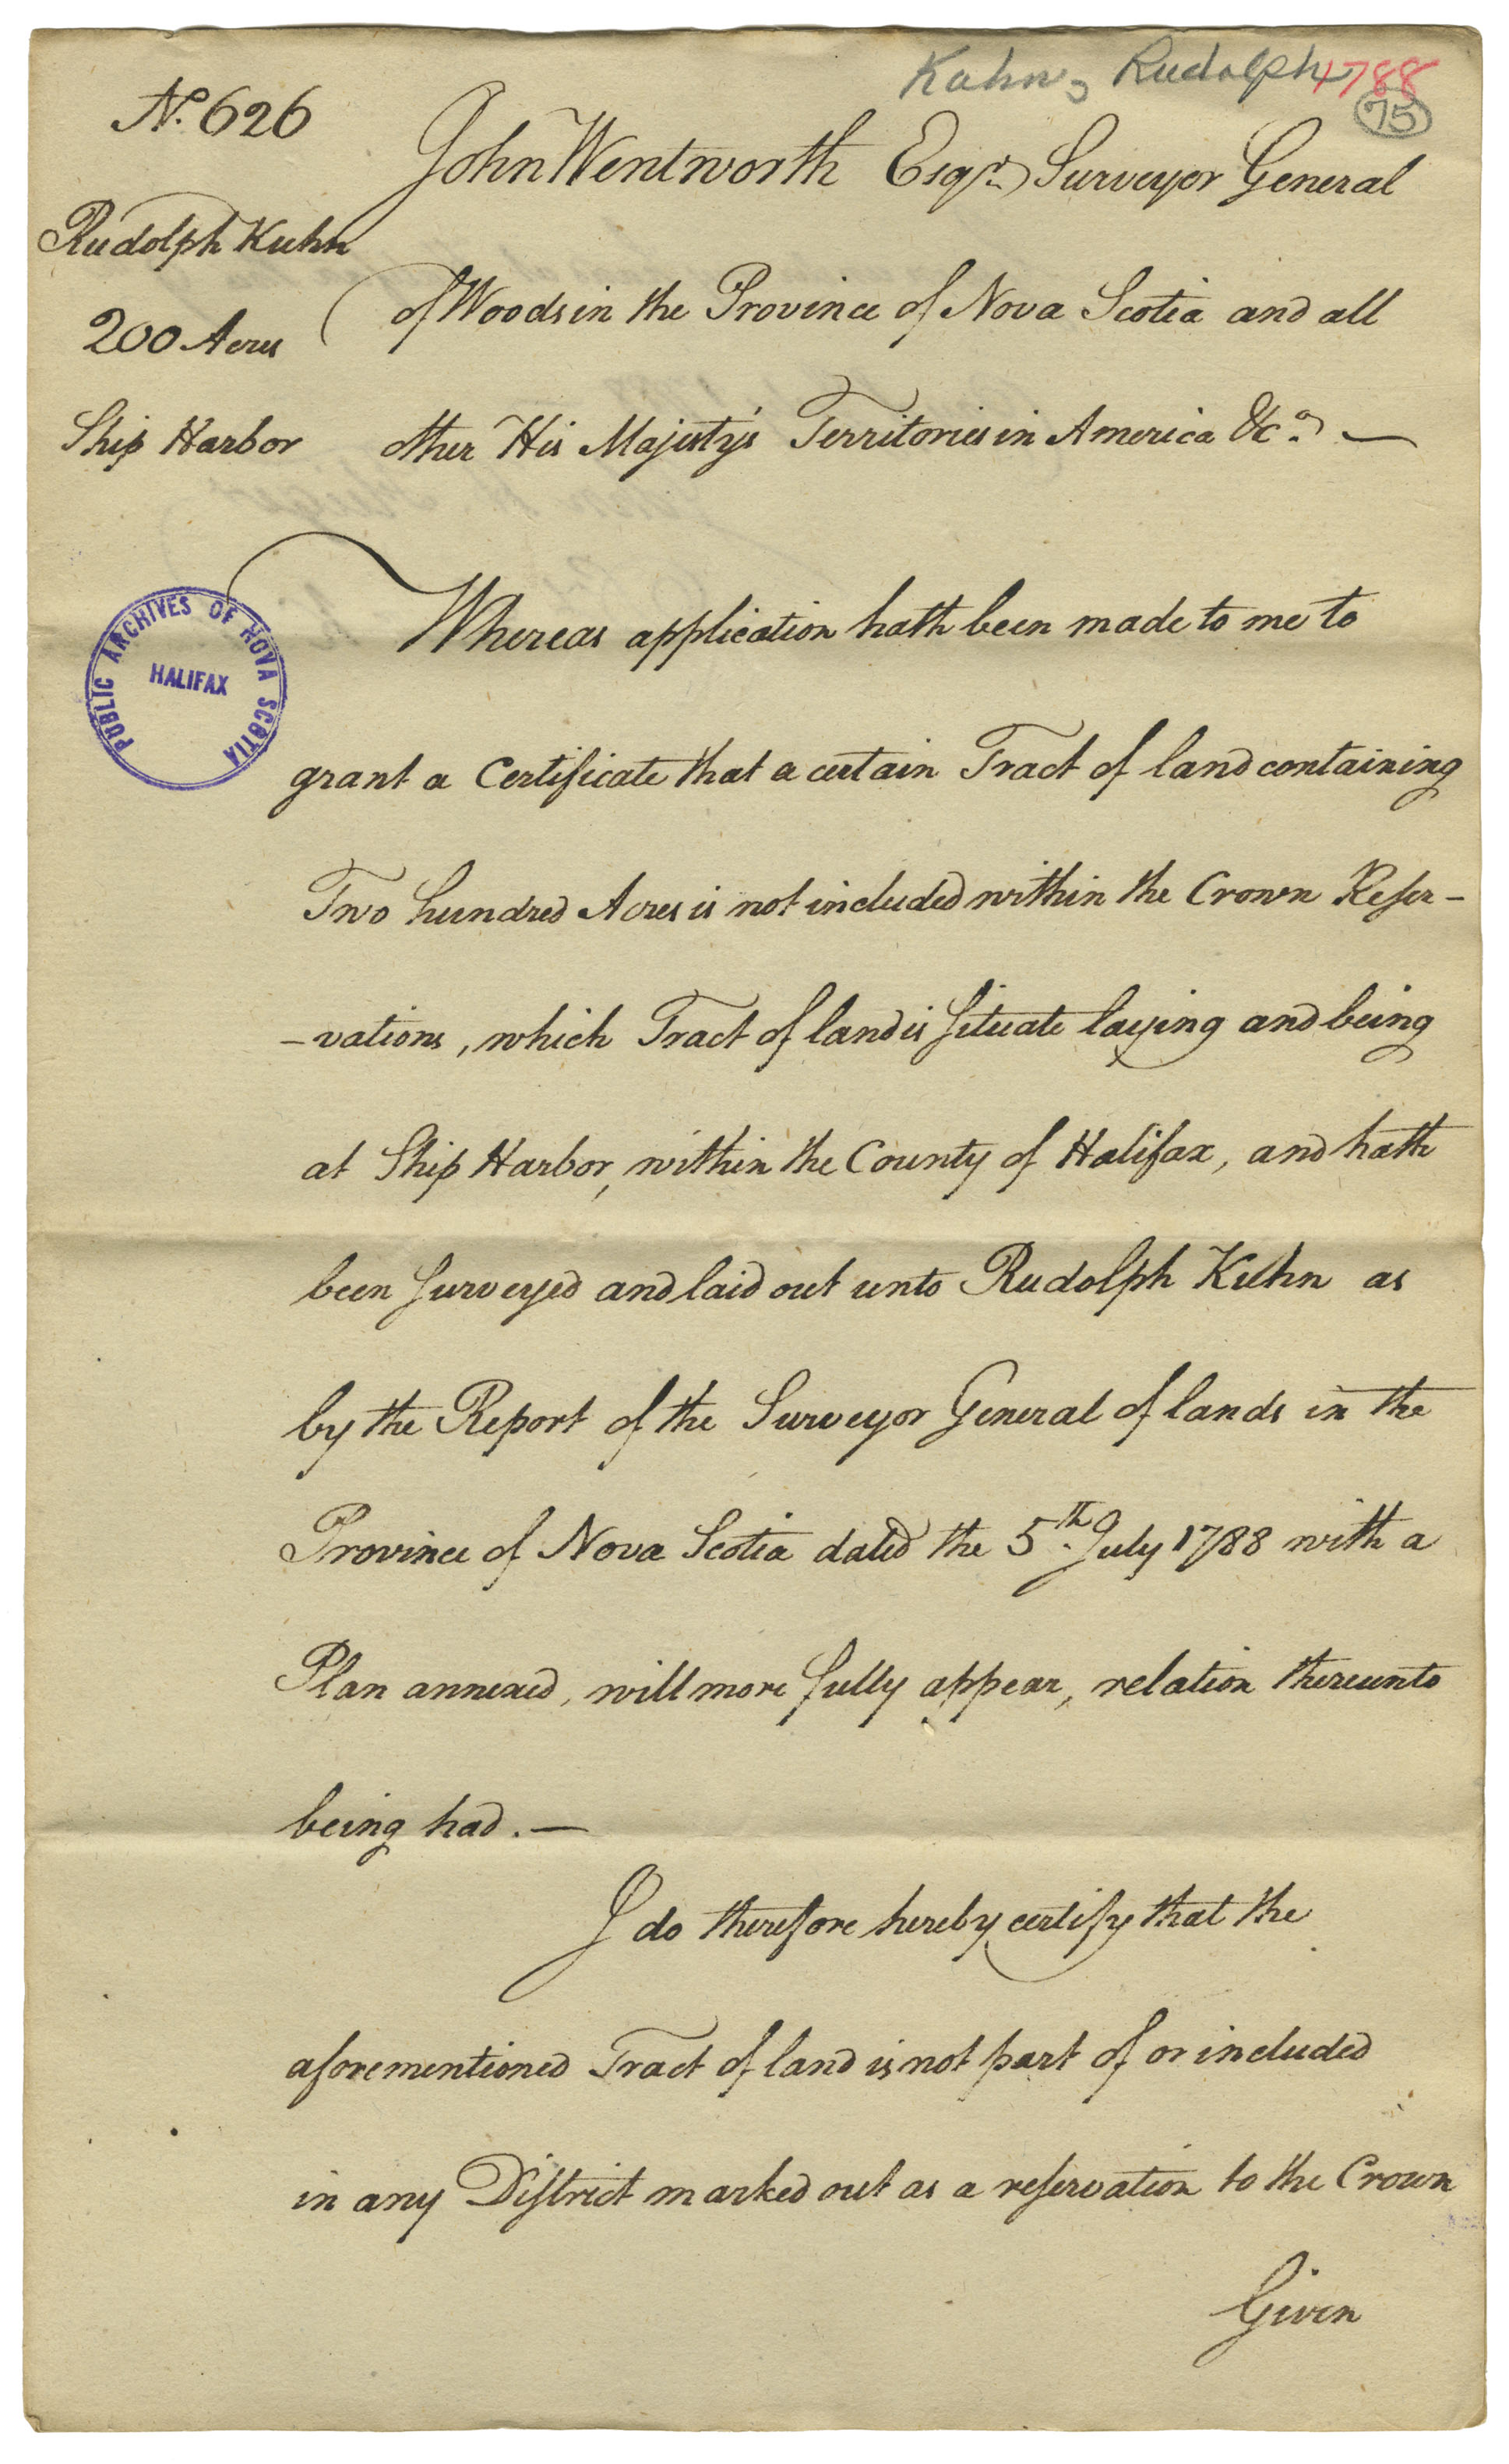 Kuhn, Rudolph 1788
75
No. 626
John Wentworth Esqr. Surveyor General
Rudolph Kuhn
of Woods in the Province of Nova Scotia and all
200 Acres
Ship Harbor
other His Majesty's Territories in America &c.a —
Whereas application hath been made to me to
PUBLIC ARCHIVES OF NOVA SCOTIA
HALIFAX
grant a Certificate that a certain Tract of land containing
Two hundred Acres is not included within the Crown Reser-
-vations, which Tract of land is situate laying and being
at Ship Harbor, within the County of Halifax, and hath
been surveyed and laid out unto Rudolph Kuhn as
by the Report of the Surveyor General of lands in the
Province of Nova Scotia dated the 5th. July 1788 with a
Plan annexed, will more fully appear, relation thereunto
being had. —
I do therefore hereby certify that the
aforementioned Tract of land is not part of or included
in any District marked out as a reservation to the Crown
Given